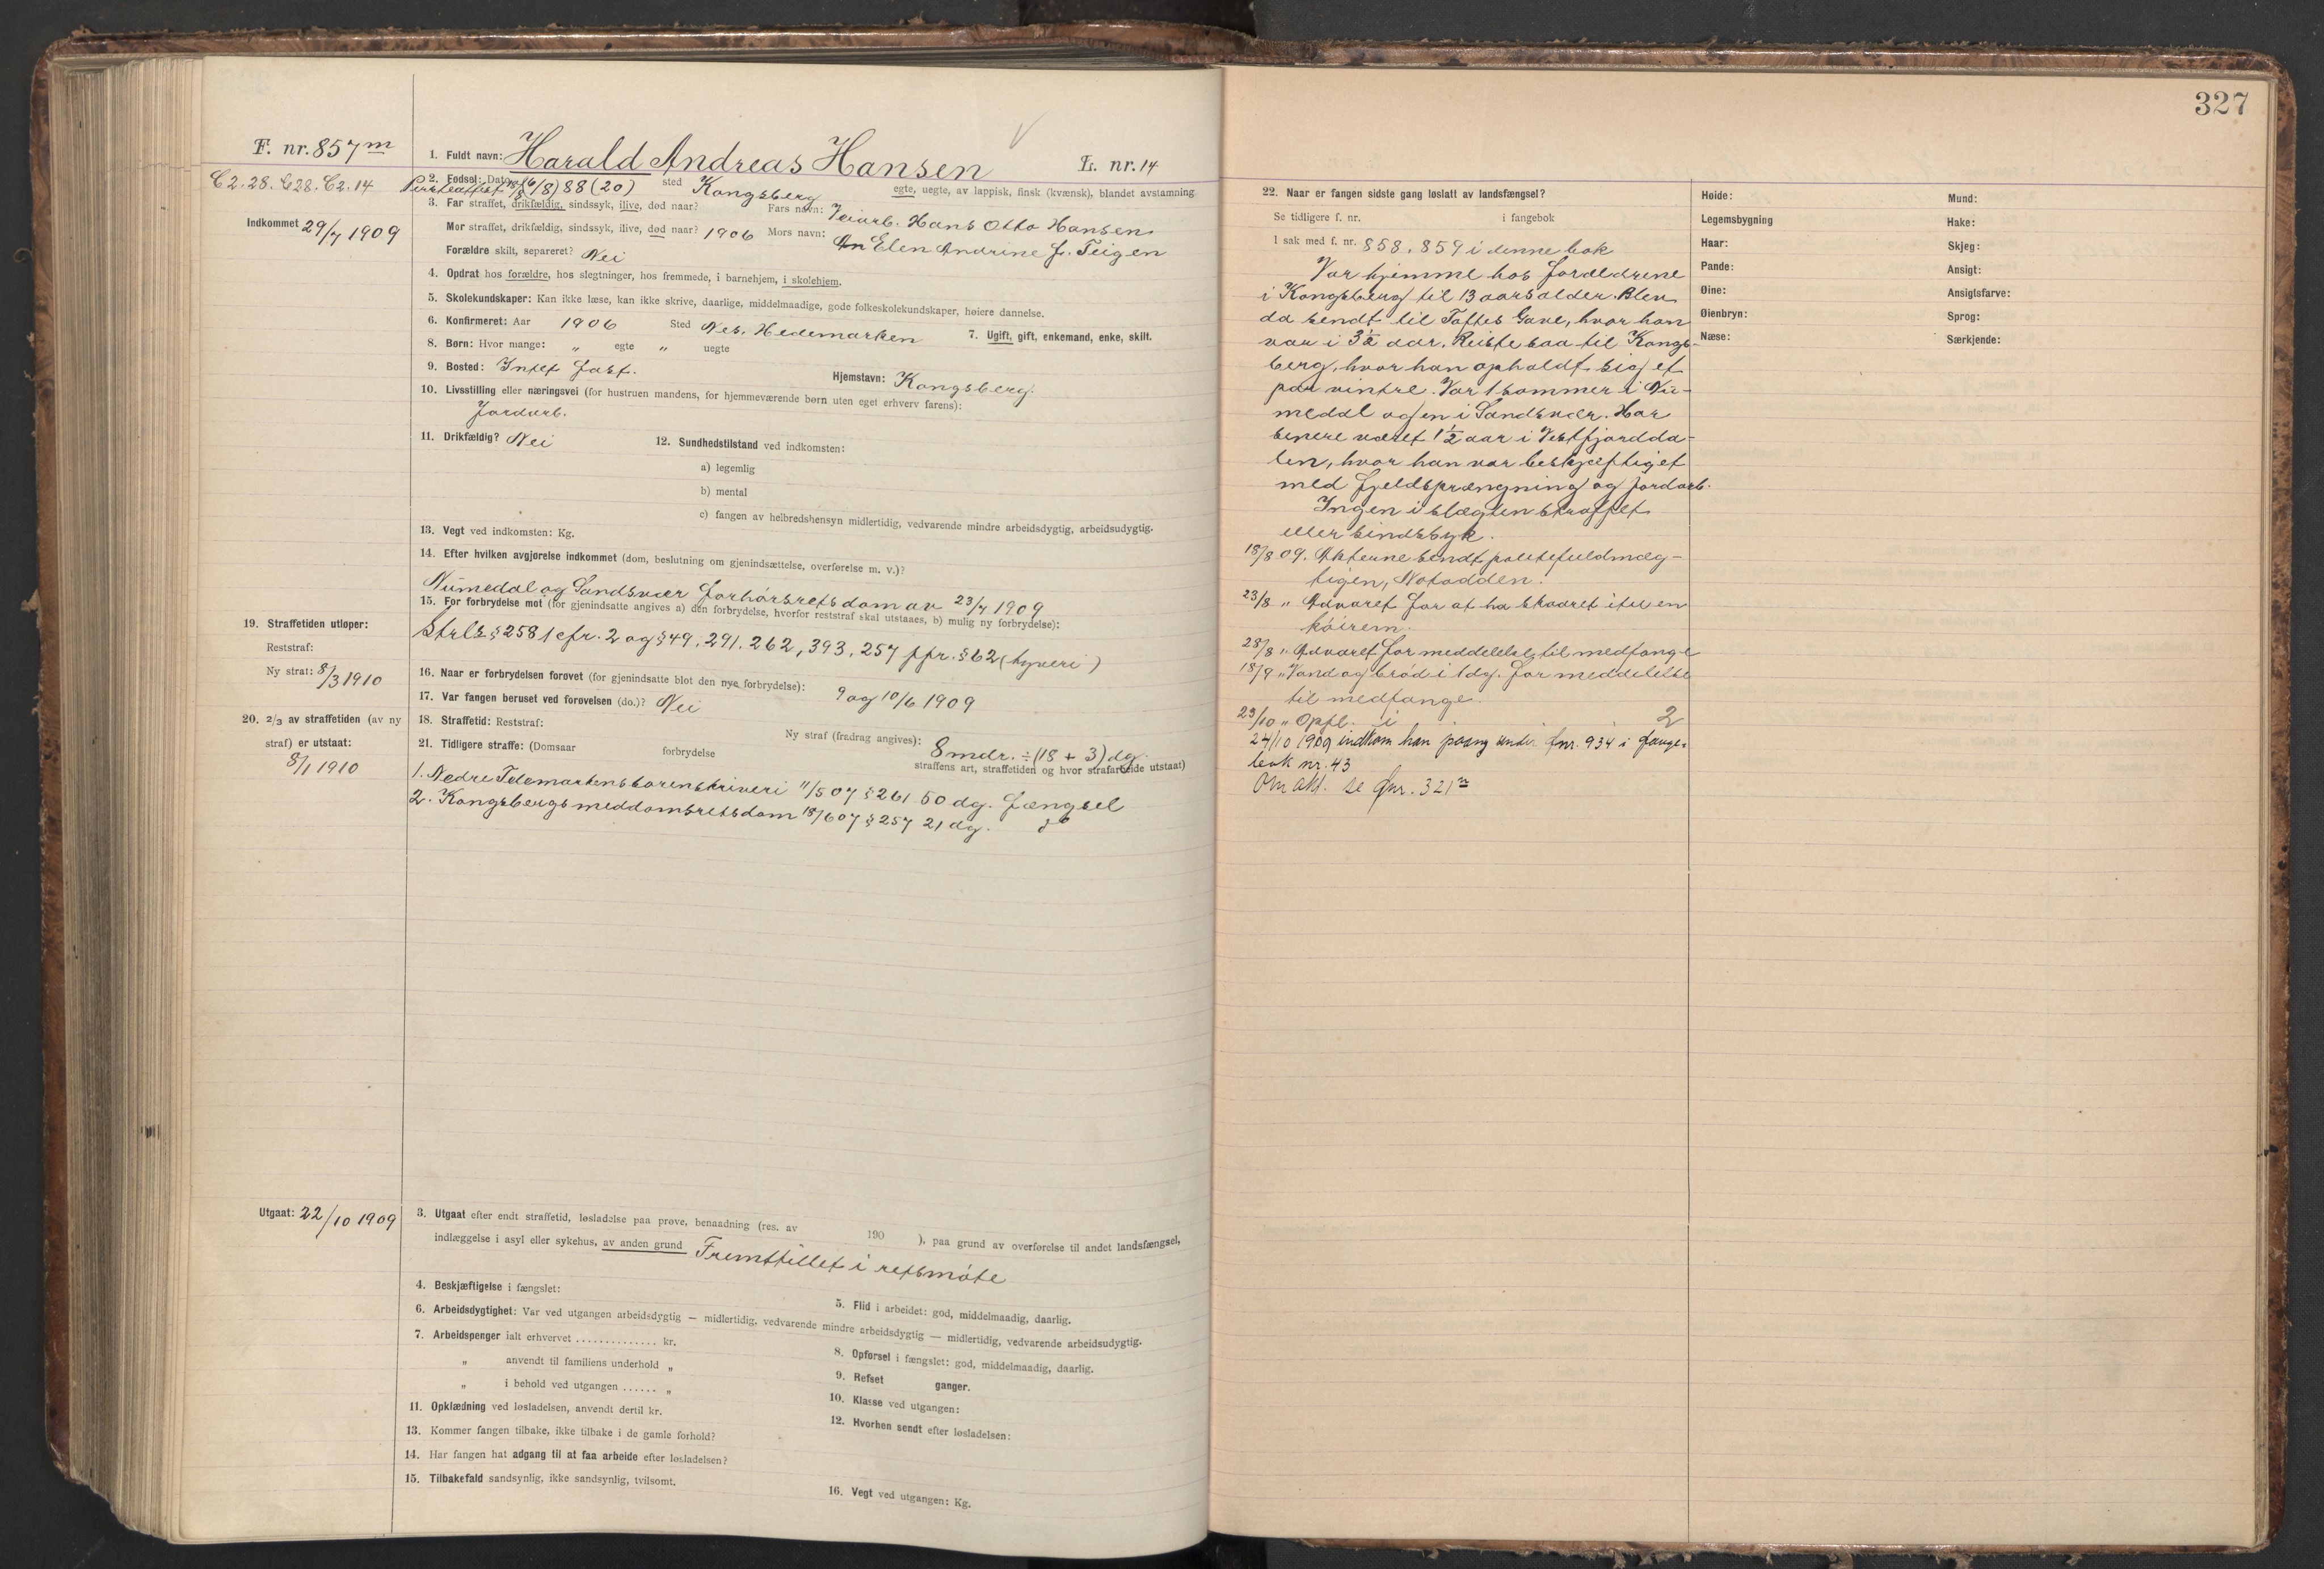 327
F. nr. 857 m
C2. 28. C28. C2. 14
Indkommet 29/7 1909
1. Fuldt navn: Harald Andreas Hansen L. nr. 14
2. Fødsel: Dato 88 (20) sted Kongsberg egte, uegte, av lappisk, finsk (kvænsk), blandet avstamning
3. Far straffet, drikfældig, sindssyk, ilive, død naar? Fars navn: Veiarb. Hans Otto Hansen
Mor straffet, drikfældig, sindssyk, ilive, død naar? 1906 Mors navn: Elen Andrine f. Teigen
Forældre skilt, separeret? Nei
4. Opdrat hos forældre, hos slegtninger, hos fremmede, i barnehjem, i skolehjem.
5. Skolekundskaper: Kan ikke læse, kan ikke skrive, daarlige, middelmaadige, gode folkeskolekundskaper, høiere dannelse.
6. Konfirmeret: Aar 1906 Sted Nes. Hedemarken 7. Ugift, gift, enkemand, enke, skilt.
8. Børn: Hvor mange: „ egte „ uegte
9. Bosted: Intet fast. Hjemstavn: Kongsberg.
10. Livsstilling eller næringsvei (for hustruen mandens, for hjemmeværende børn uten eget erhverv farens):
Jordarb.
11. Drikfældig? Nei 12. Sundhedstilstand ved indkomsten:
a) legemlig
b) mental
c) fangen av helbredshensyn midlertidig, vedvarende mindre arbeidsdygtig, arbeidsudygtig.
13. Vegt ved indkomsten: Kg.
14. Efter hvilken avgjørelse indkommet (dom, beslutning om gjenindsættelse, overførelse m. v.)?
Numedal og Sandsvær forhørsrets dom av 23/7 1909
15. For forbrydelse mot (for gjenindsatte angives a) den forbrydelse, hvorfor reststraf skal utstaaes, b) mulig ny forbrydelse):
Strls § 258 1 cfr. 2 og § 49, 291. 262, 393, 257 jfr. § 62 (tyveri)
19. Straffetiden utløper:
Reststraf:
Ny straf: 8/3 1910
16. Naar er forbrydelsen forøvet (for gjenindsatte blot den nye forbrydelse): 9 og 10/6 1909
17. Var fangen beruset ved forøvelsen (do.)? Nei
20. 2/3 av straffetiden (av ny
straf) er utstaat:
8/1 1910
18. Straffetid: Reststraf: Ny straf (fradrag angives): 8 mdr. ÷ (18 + 3) dg.
21. Tidligere straffe: (Domsaar forbrydelse straffens art, straffetiden og hvor strafarbeide utstaat)
1. Nedre Telemarkens sorenskriveri 11/5 07 § 261 50 dg. fængsel
2. Kongsbergs meddomsretsdom 18/6 07 § 257 21 dg. do
Utgaat: 22/10 1909
3. Utgaat efter endt straffetid, løsladelse paa prøve, benaadning (res. av 190 ), paa grund av overførelse til andet landsfængsel,
indlæggelse i asyl eller sykehus, av anden grund Fremstillet i retsmøte
4. Beskjæftigelse i fængslet:
5. Flid i arbeidet: god, middelmaadig, daarlig.
6. Arbeidsdygtighet: Var ved utgangen arbeidsdygtig — midlertidig, vedvarende mindre arbeidsdygtig — midlertidig, vedvarende arbeidsudygtig.
7. Arbeidspenger ialt erhvervet .............. kr.
„ anvendt til familiens underhold „
„ i behold ved utgangen ...... „
8. Opførsel i fængslet: god, middelmaadig, daarlig.
9. Refset ganger.
10. Klasse ved utgangen:
11. Opklædning ved løsladelsen, anvendt dertil kr.
12. Hvorhen sendt efter løsladelsen:
13. Kommer fangen tilbake, ikke tilbake i de gamle forhold?
14. Har fangen hat adgang til at faa arbeide efter løsladelsen?
15. Tilbakefald sandsynlig, ikke sandsynlig, tvilsomt.
16. Vegt ved utgangen: Kg.
22. Naar er fangen sidste gang løslatt av landsfængsel?
Se tidligere f. nr. i fangebok
I sak med f. nr. 858. 859 i denne bok
Var hjemme hos forældrene
i Kongsberg til 13 aarsalder. Blev
da sendt til Toftes Gave, hvor han
var i 3½ aar. Reiste saa til Kongs-
berg, hvor han opholdt sig et
par vintre. Var 1 sommer i Nu-
medal og en i Sandsvær. Har
senere været 1½ aar i Vestfjordda-
len, hvor han var beskjæftiget
med fjeldsprængning og jordarb.
Ingen i slægten straffet
eller sindssyk.
18/8 09. Akterne sendt politifuldmæg-
tigen, Notodden.
23/8 „ Advaret for at ha skaaret itu en
köirem.
28/8 „ Advaret for meddelelse til medfange
18/9 „ Vand og brød i 1 dg. for meddelelse
til medfange.
23/10 „ Opfl. i 2
24/10 1909 indkom han paany under fnr. 934 i fange-
bok nr. 43
Om akt. se fnr. 321
Høide:
Legemsbygning
Haar:
Pande:
Øine:
Øienbryn:
Næse:
Mund:
Hake:
Skjeg:
Ansigt:
Ansigtsfarve:
Sprog:
Særkjende: